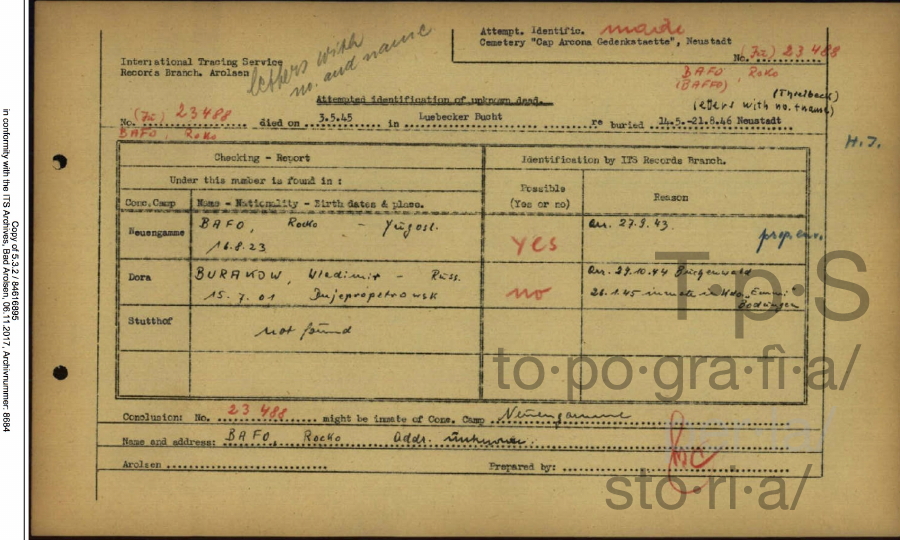 in conformity with the ITS Archives, Bad Arolsen, 06.11.2017, Archivnummer: 8684
Copy of 5.3.2 / 84616895
International Tracing Service
Records Branch. Arolsen
letters with
no. and name
Attempt. Identific. made
Cemetery "Cap Arcona Gedenkstaette", Neustadt
No. 23488
BAFO, Roko
(BAFFO)
(Thielbeck)
letters with no. + name
Attempted identification of unknown dead.
No. 23488 died on 3.5.45 in Luebecker Bucht re buried 14.5.-21.8.46 Neustadt
BAFO, Roko
H.J.
Checking - Report
Identification by ITS Records Branch.
Under this number is found in :
Possible
(Yes or no)
Reason
Conc.Camp
Name - Nationality - Birth dates & place.
Neuengamme
BAFO, Rocko - Jugosl.
16.8.23
yes
arr. 27.9.43.
Dora
BURAKOW, Wladimir - Russ.
15.7.01 Dnjepropetrowsk
no
arr. 29.10.44 Buchenwald
26.1.45 inmate in Kdo. "Emmi"
Stutthof
not found
T·p·S
to·po·gra·fi·a/
Conclusion: No. 23 488 might be inmate of Conc. Camp Neuengamme
Name and address: BAFO Rocko Addr. unknown.
Arolsen
Prepared by:
sto·ri·a/